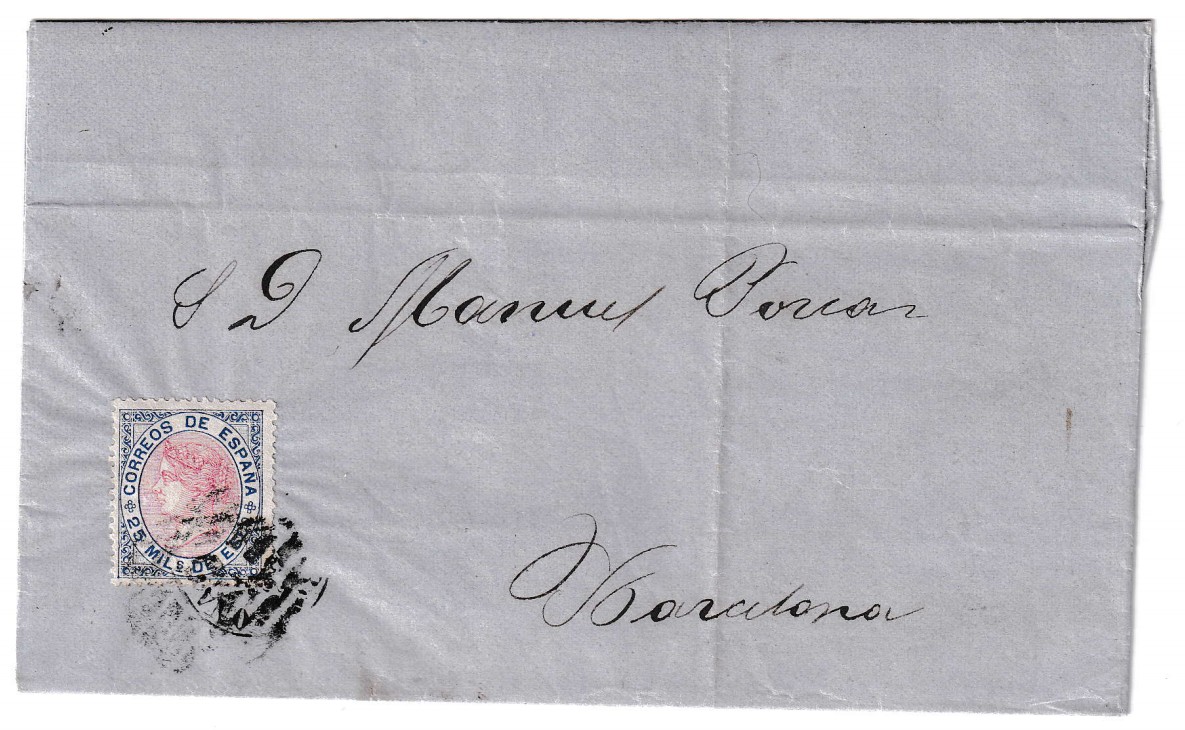 S D Manuel Porcar
CORREOS DE ESPAÑA
25 MILS DE E
Barcelona